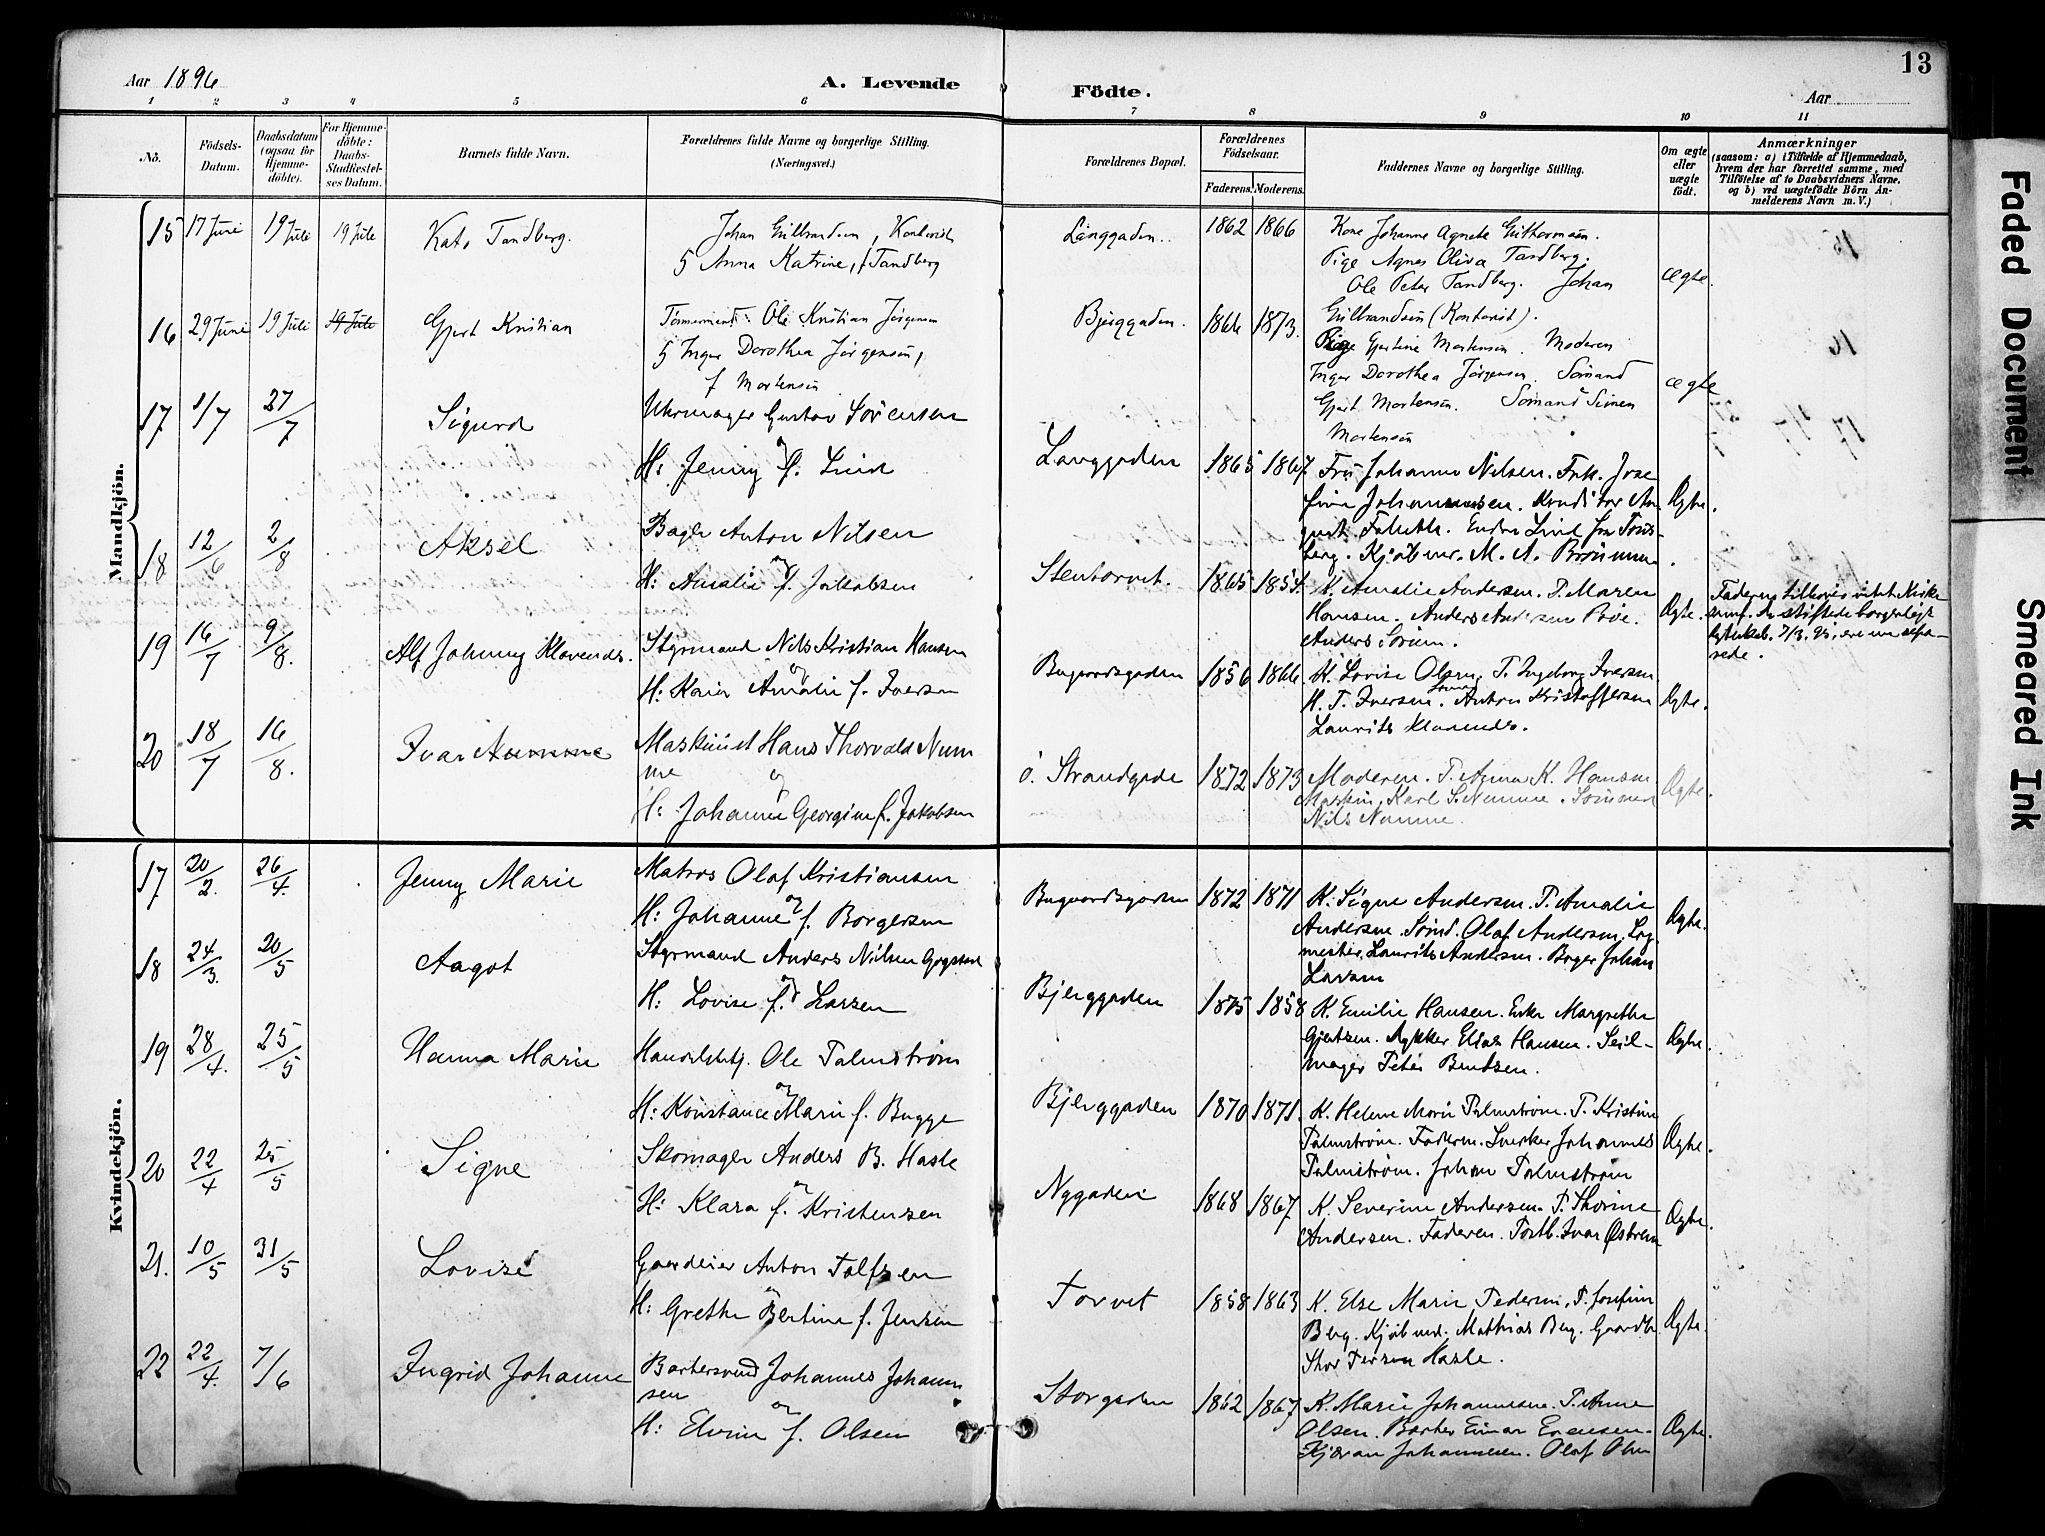 Aar 1896
A. Levende Födte.
13
Aar
1 2 3 4 5 6 7 8 9 10 11
No. Födsels-Datum. Daabsdatum (ogsaa for Hjemmedöbte). For Hjemmedöbte: Daabs-Stadfæstelses Datum. Barnets fulde Navn. Forældrenes fulde Navne og borgerlige Stilling. (Næringsvei.)
Forældrenes Bopæl. Forældrenes Födselsaar. Faderens. Moderens. Faddernes Navne og borgerlige Stilling. Om ægte eller uægte födt. Anmærkninger
(saasom: a) i Tilfælde af Hjemmedaab, hvem der har forrettet samme, med Tilföielse af to Daabsvidners Navne, og b) ved uægtefödte Börn Anmelderens Navn m. V.)
Mandkjön.
15 17 Juni 19 Juli 19 Juli Kato Tandberg. Johan Gulbrandsen, Kontorist
5 Anna Katrine, f Tandberg
Langgaden. 1862 1866 Kone Johanne Agnete Guttormsen.
Pige Agnes Oliva Tandberg.
Ole Peter Tandberg. Johan
Gulbrandsen (Kontorist).
ægte.
16 29 Juni 19 Juli 19 Juli Gjert Kristian Tømmermand Ole Kristian Jörgensen
5 Inger Dorothea Jörgensen,
f Mortensen
Bjerggaden. 1866 1873. Pige Gjertine Mortensen. Moderen
Inger Dorothea Jörgensen. Sömand
Gjert Mortensen. Sömand Simen
Mortensen
ægte
17 1/7 27/7 Sigurd Uhrmager Gustav Sörensen
og
H: Jenny f. Lind
Langgaden 1865 1867 Fru Johanne Nilsen. Frk. Jose
fine Johannessen. Konditor Au
gust Ægte.
18 12/6 2/8 Aksel Bager Anton Nilsen
og
H: Amalie f. Jakobsen
Stentorvet. 1865 1854. K. Amalie Andersen. P. Maren
Hansen. Anders Andersen Böe.
Anders Sörum.
Ægte.
19 16/7 9/8. Alf Johnny Klavenes. Styrmand Nils Kristian Hansen
og
H: Karen Amalie f. Iversen
Bugaardsgaden 1856 1866 K. Lovise Olsen, P. Ingeborg Iversen
H. T. Iversen. Anton Kristoffersen
Laurits Klavenes.
Ægte.
20 18/7 16/8. Ivar Numme Maskinist Hans Thorvald Num
me og
H: Johanne Georgine f. Jakobsen
ö. Strandgade 1872 1873 Moderen. P. Anna K. Hansen
Maskin. Karl S. Numme. Sömmand
Nils Numme.
Ægte.
Kvindekjön.
17 20/2. 26/4. Jenny Marie Matros Olaf Kristiansen
og
H: Johanne f. Borgersen
Bugaardsgaden 1872 1871 K. Signe Andersen. P. Amalie
Andersen. Sömd. Olaf Andersen. Log
mester Laurits Andersen. Bager Johan
Larsen
Ægte.
18 24/3. 20/5 Aagot Styrmand Anders Nilsen Gogstad
og
H: Lovise f. Larsen
Bjerggaden 1875 1858 K. Emilie Hansen. Enke Margrethe
Gjertsen. Elias Hansen. Seil-
mager Peter Bentsen.
Ægte.
19 28/4. 25/5 Hanna Marie Handelsbetj. Ole Palmström
og
H: Konstance Marie f. Bugge
Bjerggaden 1870 1871. K. Helene Marie Palmström. P. Kristine
Palmström. Faderen. Snekker Johannes
Palmström. Johan Palmström
Ægte.
20 22/4 25/5 Signe Skomager Anders B. Hasle
og
H: Klara f. Kristensen
Nygaden 1868 1867 K. Severine Andersen. P. Thorine
Andersen. Faderen. Postb. Ivar Østrem
Ægte.
21. 10/5 31/5 Lovise Gaardeier Anton Tolfsen
og
H: Grethe Bertine f. Jensen
Torvet 1858 1863 K. Else Marie Pedersen, P. Josefine
Berg. Kjöbmd. Mathias Berg. Gaardbr.
Thor Hasle.
Ægte.
22 22/4. 7/6 Ingrid Johanne Barkersvend Johannes Johann
sen og
H: Elvine f. Olsen
Storgaden 1862 1867 K. Marie Johannesen. P. Anne
Olsen. Barker Einar Evensen.
Johannesen. Olaf Olsen
Ægte.
Faded Document
Smeared Ink